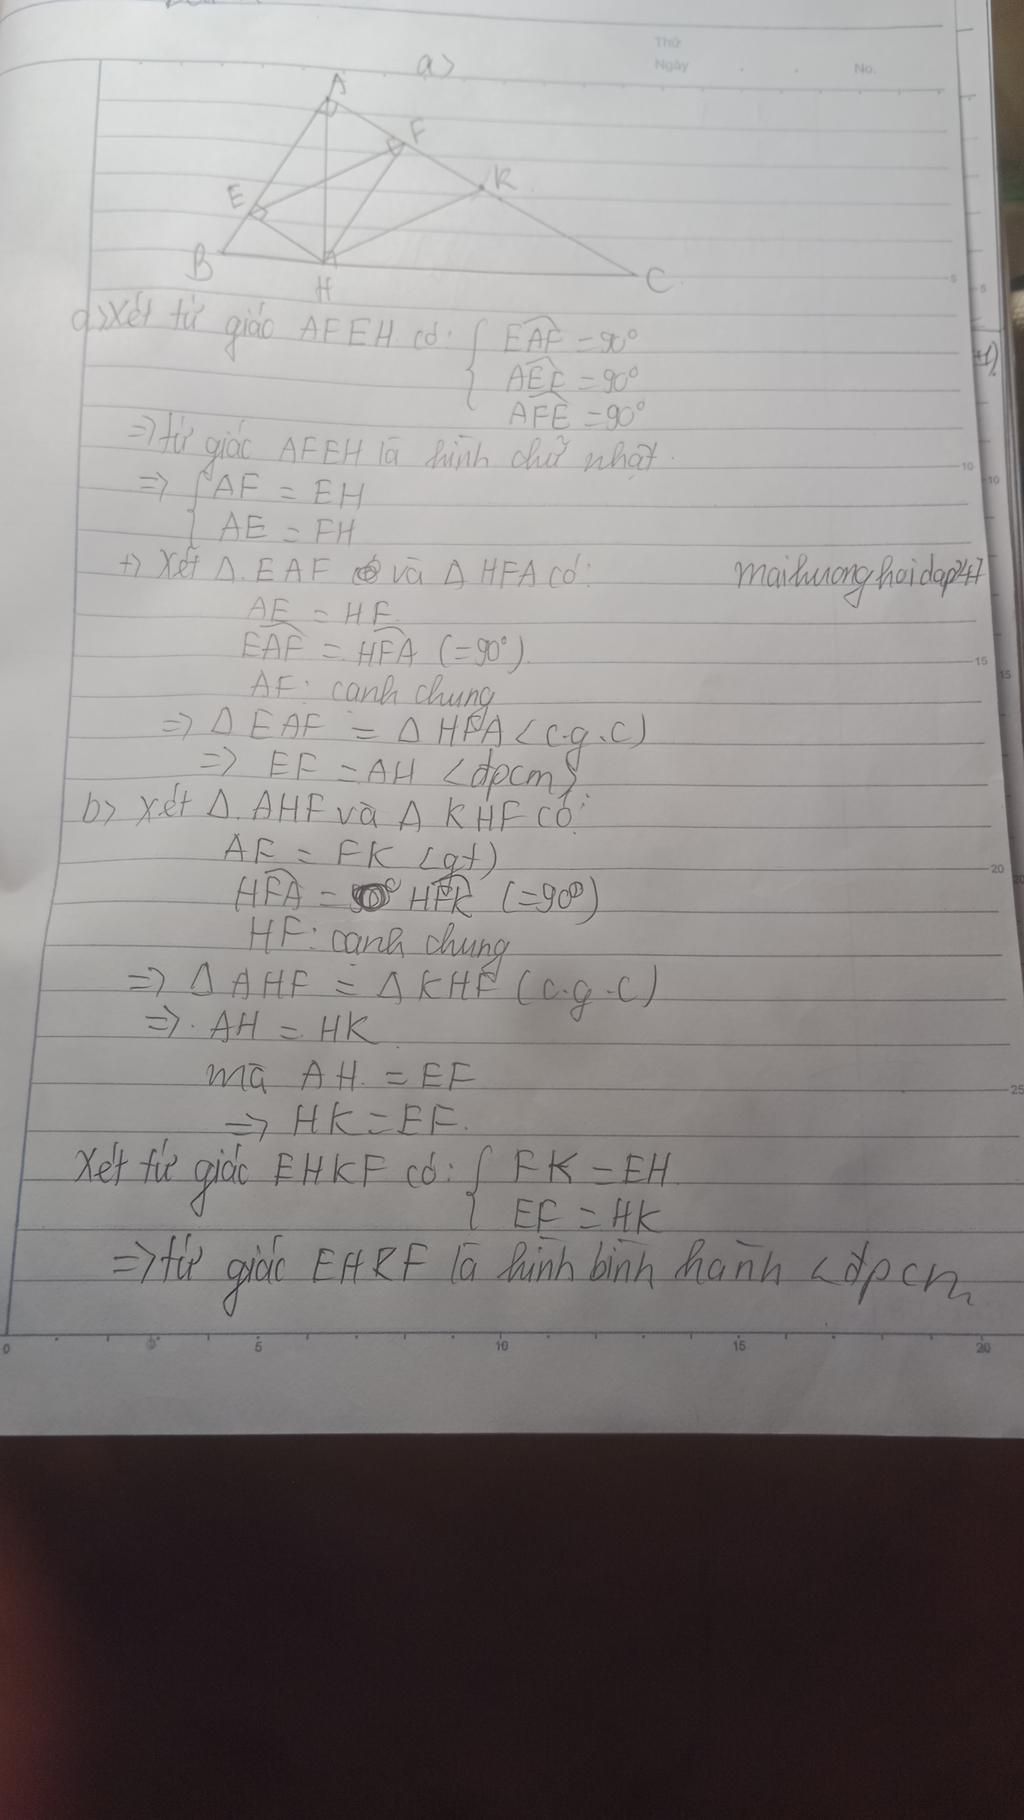 Thứ
Ngày
No.
a>
A
F
K
E
B
H
C
a> Xét tứ giác AFEH có: { EAF = 90°
AEE = 90°
AFE = 90°
=> tứ giác AFEH là hình chữ nhật.
=> { AF = EH
AE = FH
+> Xét Δ EAF và Δ HFA có:
maihuonghoidap247
AE = HF
EAF = HFA (=90°).
AF: cạnh chung
=> Δ EAF = Δ HFA <c.g.c)
=> EF = AH <đpcm>
b> Xét Δ AHF và Δ KHF có:
AF = FK <gt)
HFA = HFK (=90°)
HF: cạnh chung
=> Δ AHF = Δ KHF (c.g.c)
=> AH = HK
mà AH = EF
=> HK = EF.
Xét tứ giác EHKF có: { FK = EH
EF = HK
=> tứ giác EHKF là hình bình hành <đpcm
5
10
15
20
25
5
10
15
20
0
5
10
15
20